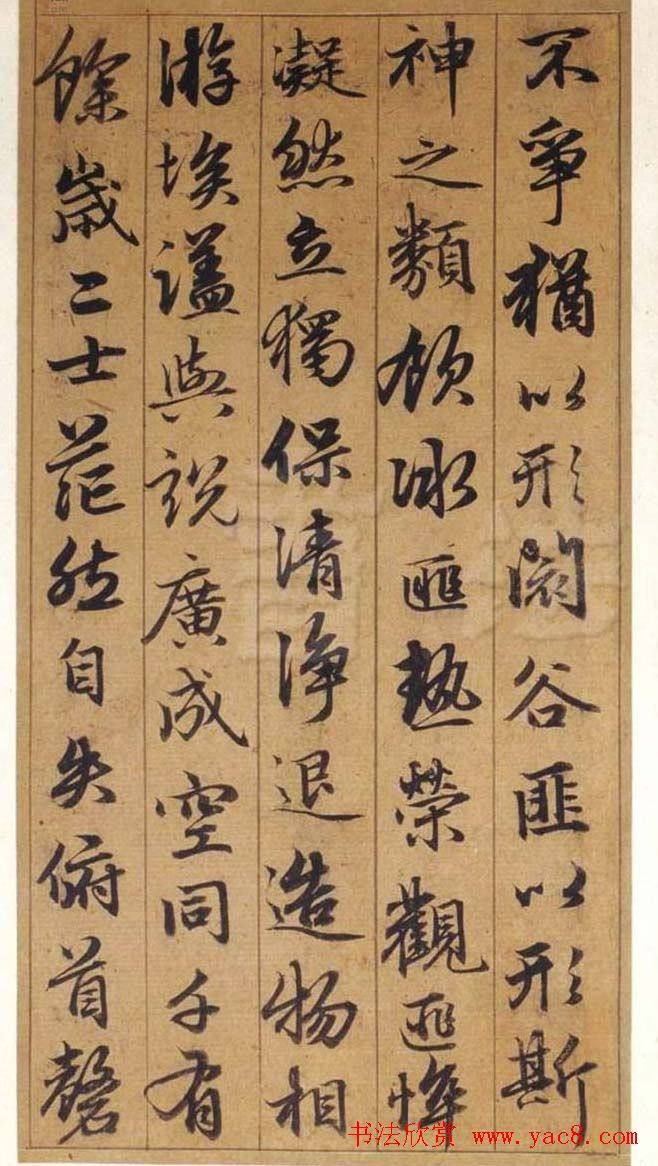 不爭猶以形澗谷匪以形斯
神之類飲冰匪熱榮觀匪
凝然立獨保清淨退造物相
游埃壒與說廣成空同千有
餘歲二士茫然自失俯首磬
书法欣赏 www.yac8.com